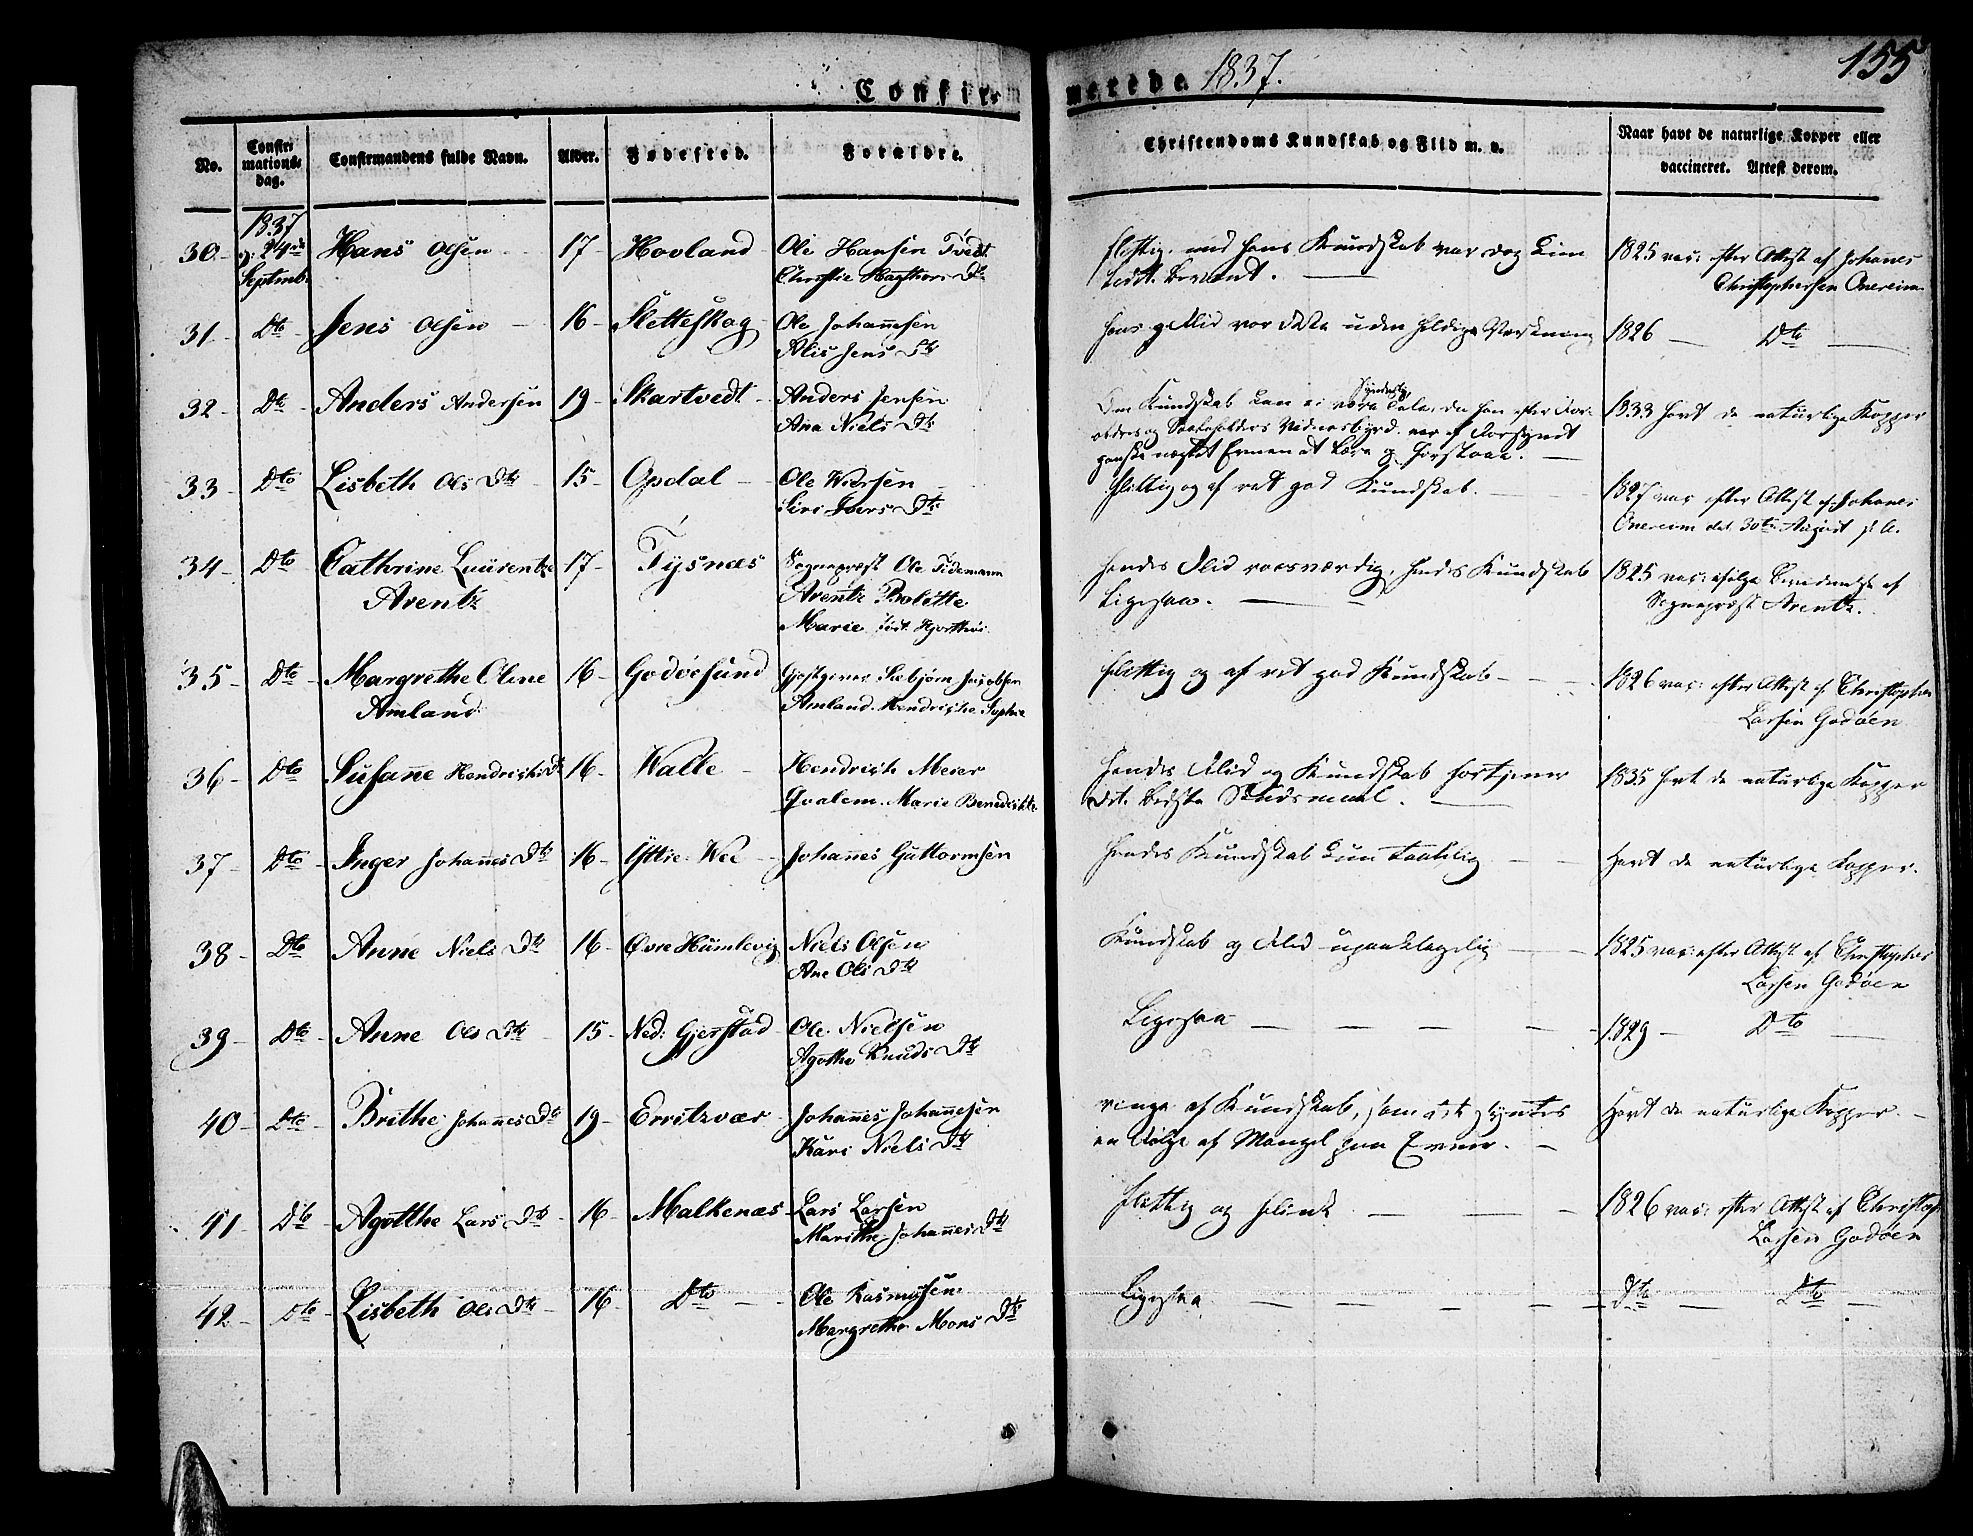 Confirmerede 1837.
155
No.
Confirmationsdag.
Confirmandens fulde Navn.
Alder.
Fødested.
Forældre.
Christendoms Kundskab og Flid m. v.
Naar havt de naturlige Kopper eller vaccineret. Attest derom.
30 1837 24de Septemb. Hans Olsen 17 Hovland Ole Hansen Tvedt
Christie Dtr
flittig, med hans Kundskab var dog kun 1825 vac: efter Attest af Johanes
Christophersen Onereim
31 Dto Jens Olsen 16 Sletteskog Ole Johannesen
Alis Jens Dtr
hans Flid var uden heldige Virkning 1826 Dto
32 Dto Anders Andersen 19 Skartvedt Anders Jensen
Ana Niels Dtr
Om Kundskab kan ei være Tale, da han efter For- 1833 havt de naturlige Kopper
ældres og Skoleholders Vidnesbyrd
ganske Evnen at lære og forstaae.
33 Dto Lisbeth Ols Dtr 15 Opdal Ole Wiersen
Siri Ivers Dtr
flittig og af ret god Kundskab. 1827 vac efter Attest af Johanes
Onereim dat 30te August
34 Dto Cathrine Laurentze Arentz 17 Tysnæs Sognepræst Ole Tidemann
Arentz Bolette
Marie
hendes Flid roesværdig, hendes Kundskab ligesaa. 1825 vac: ifølge af
Sognepræst Arentz.
35 Dto Margrethe Oline Amland 16 Godøesund Gjestgiver Jacobsen
Amland. Hendrikke Sophie
flittig og af ret god Kundskab 1826 vac: efter Attest af Christopher
Larsen Godøen
36 Dto Susanne Hendrichs D 16 Walle Hendrich Meier
Marie Benedikte
hendes Flid og Kundskab fortjener 1835 havt de naturlige Kopper
det bedste Skudsmaal.
37 Dto Inger Johannes Dtr 16 Yttre Wee Johannes Guttormsen
hendes Kundskab kun taalelig havt de naturlige Kopper.
38 Dto Anne Niels Dtr 16 Øvre Humlevig Niels Olsen
Ane Ols Dtr
Kundskab og Flid upaaklagelig 1825 vac: efter Attest af Christopher
Larsen Godøen
39 Dto Anne Ols Dtr 15 Ned: Gjerstad Ole Nielsen
Agothe Knuds Dtr
Ligesaa 1829 Dto
40 Dto Brithe Johannes Dtr 19 Erritzvær Johannes Johannesen
Kari Niels Dtr
ringe af Kundskab, som syntes havt de naturlige Kopper.
en Følge af Mangel paa Evner.
41 Dto Agotthe Lars Dtr 16 Malkenæs Lars Larsen
Marithe Johannes Dtr
flittig og flink 1826 vac: efter Attest af Christop.
Larsen Godøen
42 Dto Lisbeth Ols Dtr 16 Dto Ole Rasmusen
Margrethe Mons Dtr
Ligesaa Dto Dto